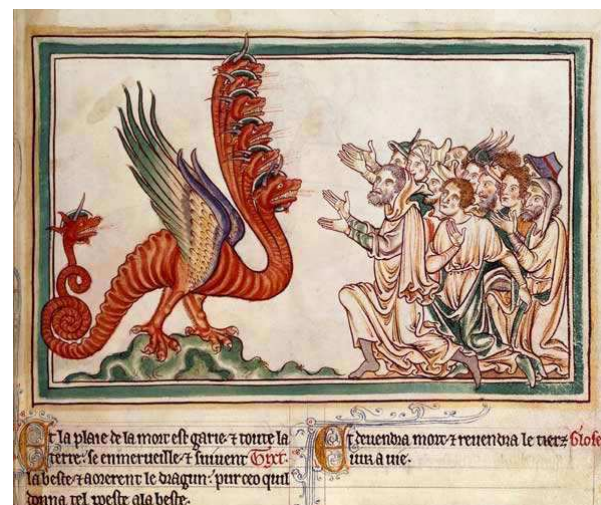 Et la plaie de la mort est garie ⁊ toute la
terre se enmerveille ⁊ siuvent Tixt.
la beste ⁊ aorerent le dragun: pur ceo quil
donna tel poeste a la beste.
Et devendra mort ⁊ revendra le tierz Glose
iur a vie.